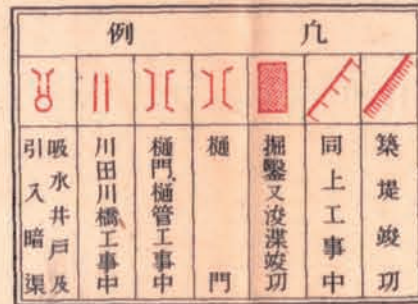 凢例
築堤竣功
同上工事中
掘鑿又浚渫竣功
樋門
樋門、樋管工事中
川田川橋工事中
吸水井戸及
引入暗渠